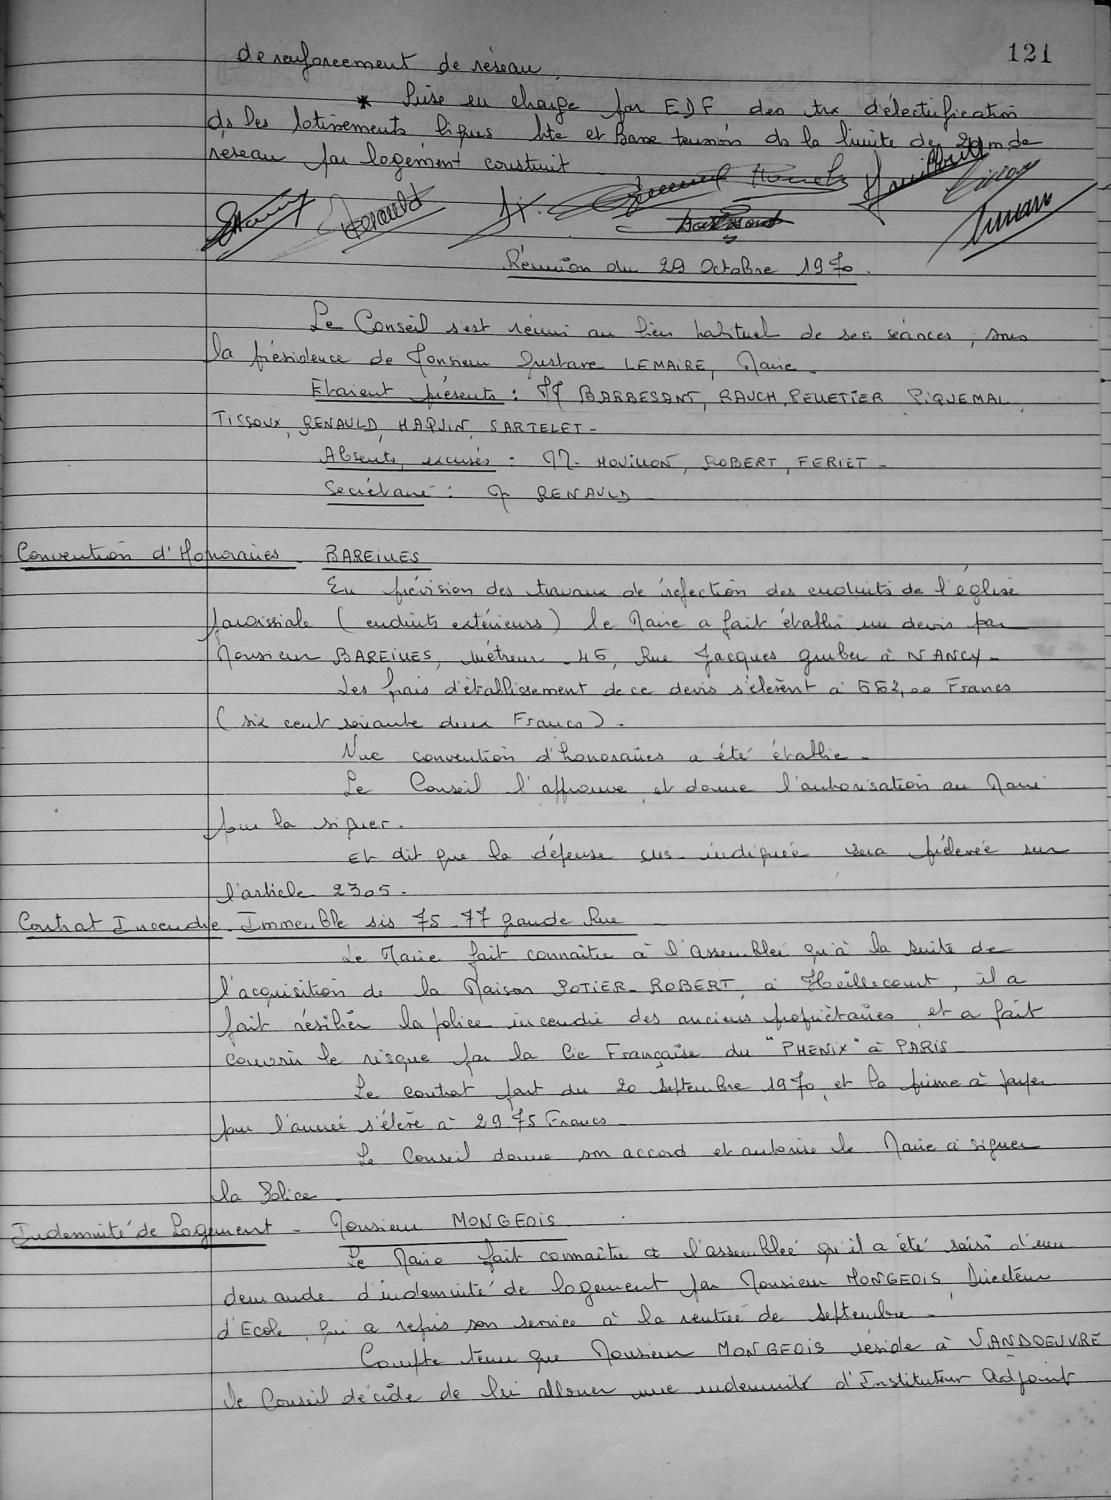 121
de renforcement de réseau.
* Prise en charge par EDF des trx d'électrification
ds les lotissements lignes hte et Basse tension ds la limite de 20 m de
réseau par logement construit
Renauld
Réunion du 29 Octobre 1970.
Le Conseil s'est réuni au lieu habituel de ses séances, sous
la présidence de Monsieur Gustave LEMAIRE, Maire.
Etaient présents : MM BARBESANT, RAUCH, PELLETIER PIQUEMAL,
TISSOUX, RENAULD, HAQUIN, SARTELET-
Absents, excusés : MM. MOUILLON, ROBERT, FERIET-
Secrétaire : M RENAULD
Convention d'Honoraires BAREILLES
En prévision des travaux de réfection des enduits de l'église
paroissiale (enduits extérieurs) le Maire a fait établir un devis par
Monsieur BAREILLES, métreur 46, Rue Jacques Gruber à NANCY-
Les frais d'établissement de ce devis s'elèvent à 662,00 Francs
(six cent soixante deux Francs).
Une convention d'honoraires a été établie-
Le Conseil l'approuve, et donne l'autorisation au Maire
pour la signer.
Et dit que la dépense sus-indiquée sera prélevée sur
l'article 2305-
Contrat Incendie Immeuble sis 75-77 grande Rue
Le Maire fait connaître à l'Assemblée qu'à la suite de
l'acquisition de la Maison POTIER-ROBERT, à Heillecourt, il a
fait résilier la police incendie des anciens propriétaires, et a fait
couvrir le risque par la Cie Française du "PHENIX" à PARIS
Le contrat part du 20 septembre 1970, et la prime à payer
pour l'année s'élève à 29.75 Francs-
Le Conseil donne son accord et autorise le Maire à signer
la Police.
Indemnité de Logement - Monsieur MONGEOIS
Le Maire fait connaître à l'assemblée qu'il a été saisi d'une
demande d'indemnité de logement par Monsieur MONGEOIS Directeur
d'Ecole, qui a repris son service à la rentrée de septembre-
Compte tenu que Monsieur MONGEOIS réside à VANDOEUVRE
le Conseil décide de lui allouer une indemnité d'Instituteur Adjoint